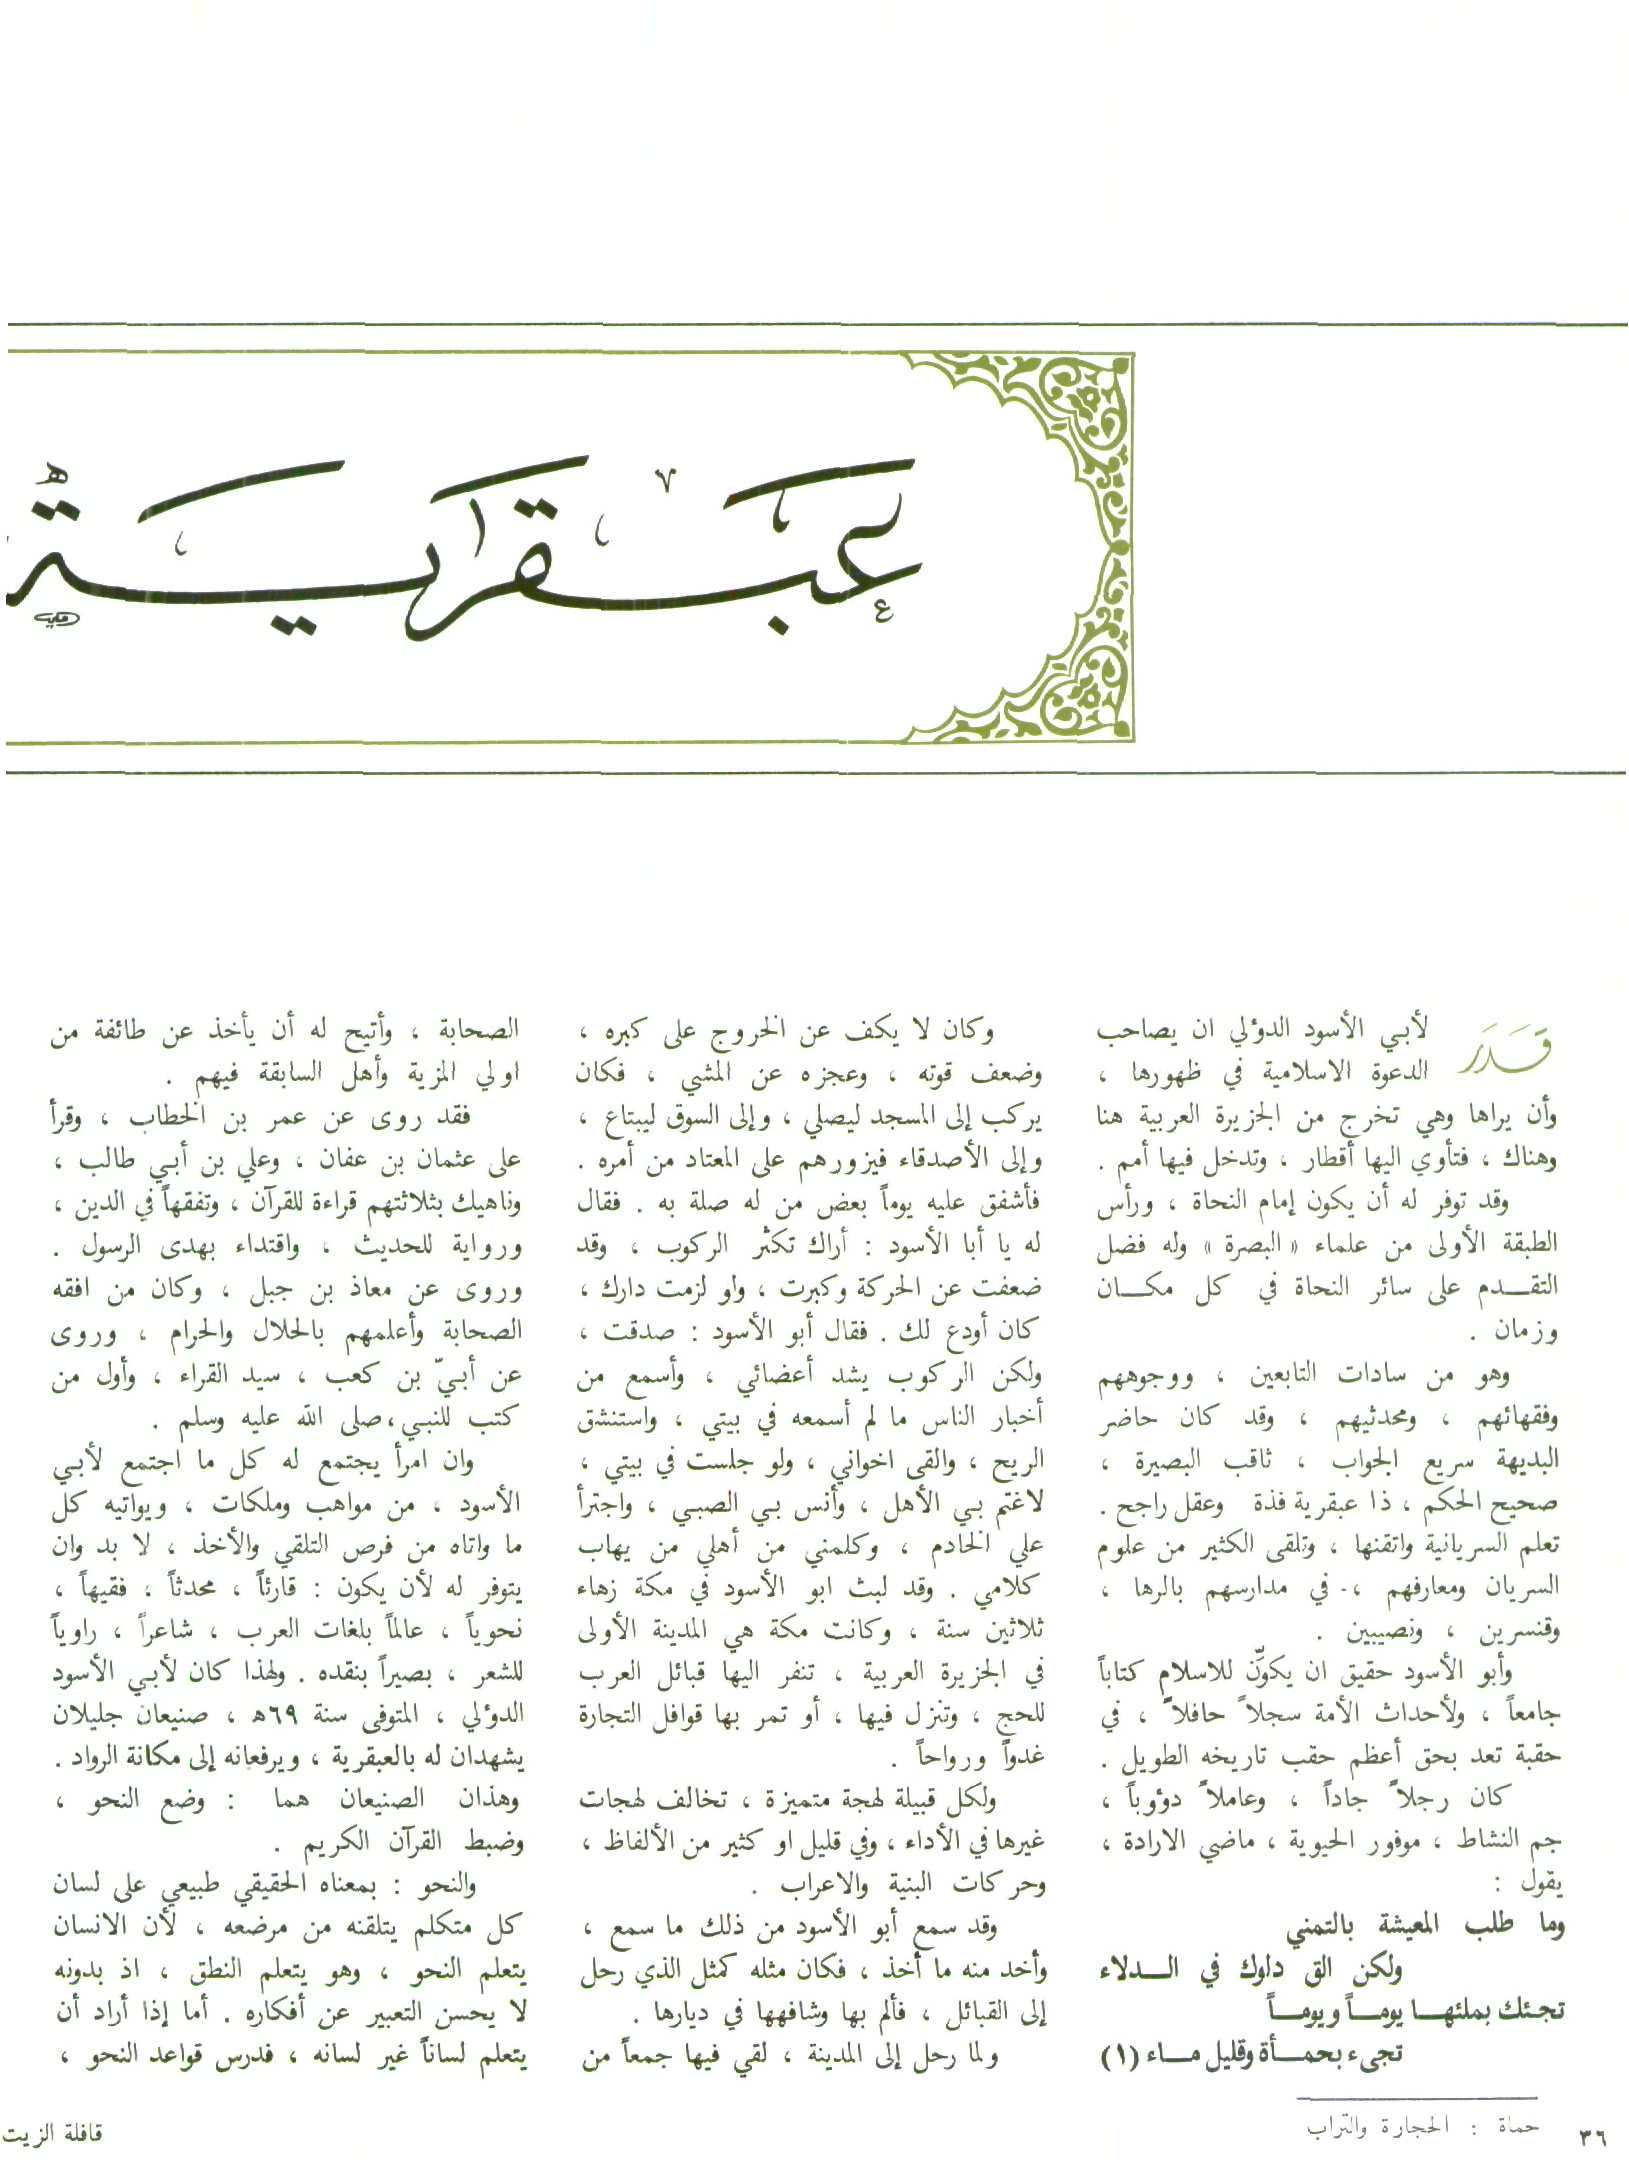 عبقرية
قدر لأبي الأسود الدؤلي ان يصاحب
الدعوة الاسلامية في ظهورها ،
وأن يراها وهي تخرج من الجزيرة العربية هنا
وهناك ، فتأوي اليها أقطار ، وتدخل فيها أمم .
وقد توفر له أن يكون إمام النحاة ، ورأس
الطبقة الأولى من علماء « البصرة » وله فضل
التقـدم على سائر النحاة في كل مكـان
وزمان .
وهو من سادات التابعين ، ووجوههم
وفقهائهم ، ومحدثيهم ، وقد كان حاضر
البديهة سريع الجواب ، ثاقب البصيرة ،
صحيح الحكم ، ذا عبقرية فذة وعقل راجح .
تعلم السريانية واتقنها ، وتلقى الكثير من علوم
السريان ومعارفهم ، في مدارسهم بالرها ،
وقنسرين ، ونصيبين .
وأبو الأسود حقيق ان يكوّن للاسلام كتاباً
جامعاً ، ولأحداث الأمة سجلاً حافلاً ، في
حقبة تعد بحق أعظم حقب تاريخه الطويل .
كان رجلاً جاداً ، وعاملاً دؤوباً ،
جم النشاط ، موفور الحيوية ، ماضي الارادة ،
يقول :
وما طلب المعيشة بالتمني
ولكن الق دلوك في الـدلاء
تجئك بملئهـا يومـاً ويومـاً
تجىء بحمـأة وقليل مـاء (١)
حماة : الحجارة والتراب
وكان لا يكف عن الخروج على كبره ،
وضعف قوته ، وعجزه عن المشي ، فكان
يركب إلى المسجد ليصلي ، وإلى السوق ليبتاع ،
وإلى الأصدقاء فيزورهم على المعتاد من أمره .
فأشفق عليه يوماً بعض من له صلة به . فقال
له يا أبا الأسود : أراك تكثر الركوب ، وقد
ضعفت عن الحركة وكبرت ، ولو لزمت دارك ،
كان أودع لك . فقال أبو الأسود : صدقت ،
ولكن الركوب يشد أعضائي ، وأسمع من
أخبار الناس ما لم أسمعه في بيتي ، واستنشق
الريح ، والقى اخواني ، ولو جلست في بيتي ،
لاغتم بي الأهل ، وأنس بي الصبي ، واجترأ
علي الخادم ، وكلمني من أهلي من يهاب
كلامي . وقد لبث ابو الأسود في مكة زهاء
ثلاثين سنة ، وكانت مكة هي المدينة الأولى
في الجزيرة العربية ، تنفر اليها قبائل العرب
للحج ، وتنزل فيها ، أو تمر بها قوافل التجارة
غدواً ورواحاً .
ولكل قبيلة لهجة متميزة ، تخالف لهجات
غيرها في الأداء ، وفي قليل او كثير من الألفاظ ،
وحركات البنية والاعراب .
وقد سمع أبو الأسود من ذلك ما سمع ،
وأخد منه ما أخذ ، فكان مثله كمثل الذي رحل
إلى القبائل ، فألم بها وشافهها في ديارها .
ولما رحل إلى المدينة ، لقي فيها جمعاً من
الصحابة ، وأتيح له أن يأخذ عن طائفة من
اولي المزية وأهل السابقة فيهم .
فقد روى عن عمر بن الخطاب ، وقرأ
على عثمان بن عفان ، وعلي بن أبي طالب ،
وناهيك بثلاثتهم قراءة للقرآن ، وتفقهاً في الدين ،
ورواية للحديث ، واقتداء بهدى الرسول .
وروى عن معاذ بن جبل ، وكان من افقه
الصحابة وأعلمهم بالحلال والحرام ، وروى
عن أبيّ بن كعب ، سيد القراء ، وأول من
كتب للنبي ، صلى الله عليه وسلم .
وان امرأ يجتمع له كل ما اجتمع لأبي
الأسود ، من مواهب وملكات ، ويواتيه كل
ما واتاه من فرص التلقي والأخذ ، لا بد وان
يتوفر له لأن يكون : قارئاً ، محدثاً ، فقيهاً ،
نحوياً ، عالماً بلغات العرب ، شاعراً ، راوياً
للشعر ، بصيراً بنقده . ولهذا كان لأبي الأسود
الدؤلي ، المتوفى سنة ٦٩ه ، صنيعان جليلان
يشهدان له بالعبقرية ، ويرفعانه إلى مكانة الرواد .
وهذان الصنيعان هما : وضع النحو ،
وضبط القرآن الكريم .
والنحو : بمعناه الحقيقي طبيعي على لسان
كل متكلم يتلقنه من مرضعه ، لأن الانسان
يتعلم النحو ، وهو يتعلم النطق ، اذ بدونه
لا يحسن التعبير عن أفكاره . أما إذا أراد أن
يتعلم لساناً غير لسانه ، فدرس قواعد النحو ،
٣٦
قافلة الزيت